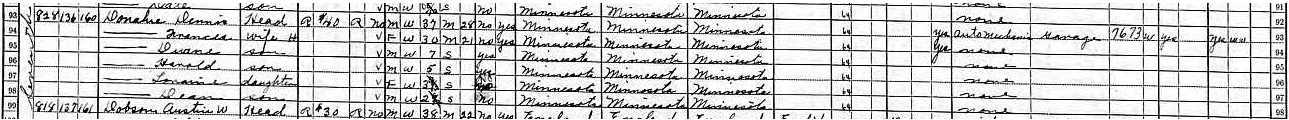 son V M W S no Minnesota Minnesota Minnesota 64 none 91
93 828 136 160 Donahue Dennis Head R $20 R no M W 37 M 28 no yes Minnesota Minnesota Minnesota 64 none 92
94 —— Frances Wife H V F W 30 M 21 no yes Minnesota Minnesota Minnesota 64 yes Auto Mechanic Garage 7673 W yes yes WW 93
95 —— Duane son V M W 7 S yes Minnesota Minnesota Minnesota 64 yes none 94
96 —— Harold son V M W 5 S yes Minnesota Minnesota Minnesota 64 none 95
97 —— Loraine daughter V F W S no Minnesota Minnesota Minnesota 64 none 96
98 —— Dean son V M W S no Minnesota Minnesota Minnesota 64 none 97
99 818 137 161 Dobson Austin W Head R $30 R no M W 38 M 22 no yes England England England 64 none 98